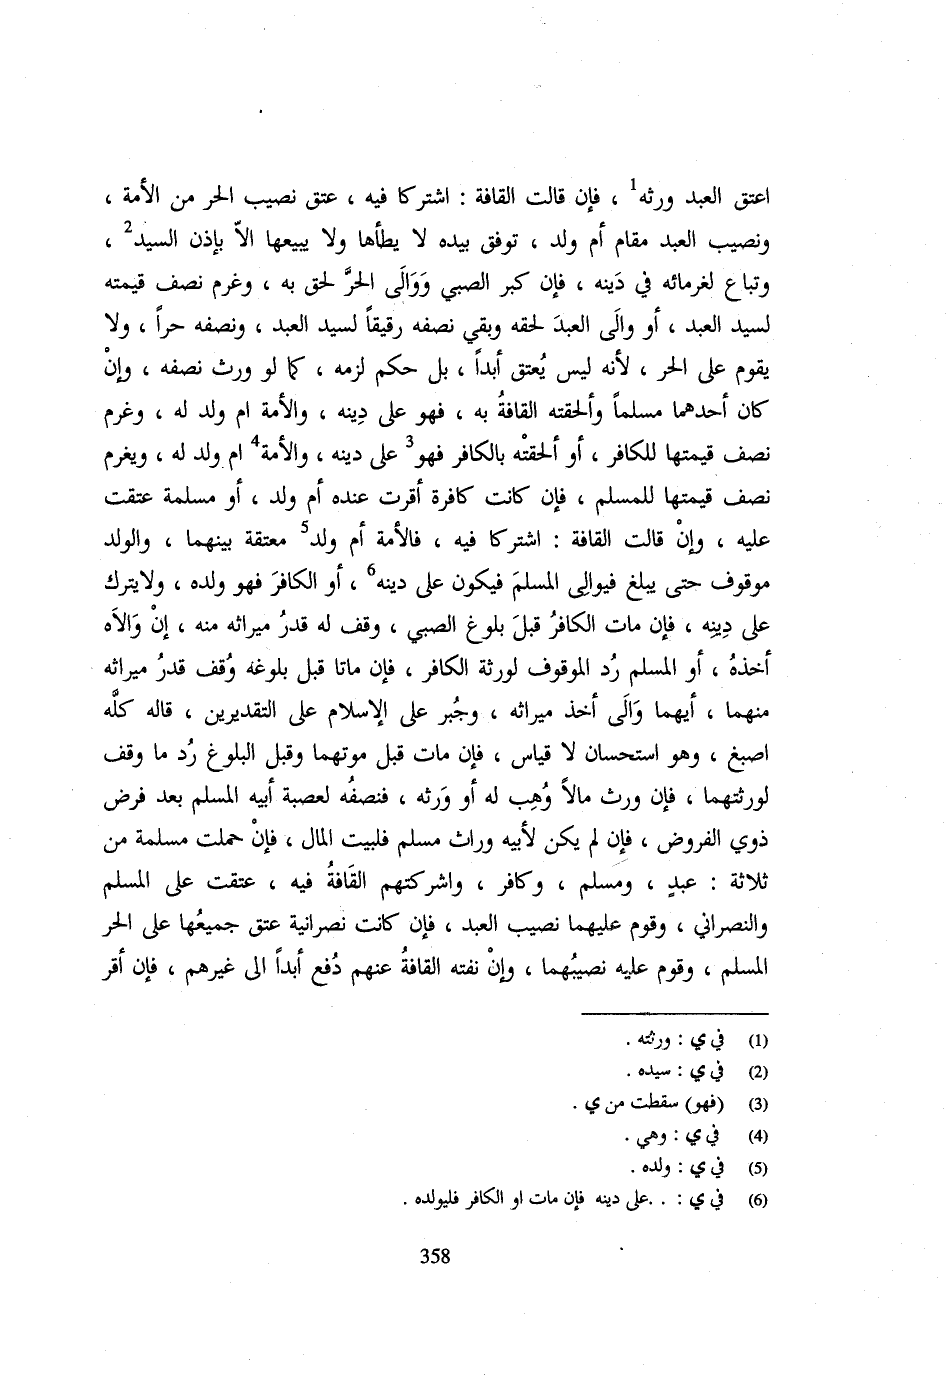 اعتق العبد ورثه1 ، فإن قالت القافة : اشتركا فيه ، عتق نصيب الحر من الأمة ،
ونصيب العبد مقام أم ولد ، توفق بيده لا يطأها ولا يبيعها الاّ بإذن السيد2 ،
وتباع لغرمائه في دَينه ، فإن كبر الصبي وَوَالَى الحرَّ لحق به ، وغرم نصف قيمته
لسيد العبد ، أو والَى العبدَ لحقه وبقي نصفه رقيقاً لسيد العبد ، ونصفه حراً ، ولا
يقوم على الحر ، لأنه ليس يُعتق أبداً ، بل حكم لزمه ، كما لو ورث نصفه ، وإنْ
كان أحدهما مسلماً وألحقته القافةُ به ، فهو على دِينه ، والأمة ام ولد له ، وغرم
نصف قيمتها للكافر ، أو ألحقتْه بالكافر فهو3 على دينه ، والأمة4 ام ولد له ، ويغرم
نصف قيمتها للمسلم ، فإن كانت كافرة أقرت عنده أم ولد ، أو مسلمة عتقت
عليه ، وإنْ قالت القافة : اشتركا فيه ، فالأمة أم ولد5 معتقة بينهما ، والولد
موقوف حتى يبلغ فيوالِى المسلمَ فيكون على دينه6 ، أو الكافرَ فهو ولده ، ولايترك
على دِينِه ، فإن مات الكافرُ قبلَ بلوغ الصبي ، وقف له قدرُ ميراثه منه ، إنْ وَالاَه
أخذهُ ، أو المسلم رُد الموقوف لورثة الكافر ، فإن ماتا قبل بلوغه وُقف قدرُ ميراثه
منهما ، أيهما وَالَى أخذ ميراثه ، وجُبر على الإسلام على التقديرين ، قاله كلَّه
اصبغ ، وهو استحسان لا قياس ، فإن مات قبل موتهما وقبل البلوغ رُد ما وقف
لورثتهما ، فإن ورث مالاً وُهِب له أو وَرثه ، فنصفُه لعصبة أبيه المسلم بعد فرض
ذوي الفروض ، فإن لم يكن لأبيه وراث مسلم فلبيت المال ، فإنْ حملت مسلمة من
ثلاثة : عبدٍ ، ومسلم ، وكافر ، واشركتهم القَافةُ فيه ، عتقت على المسلم
والنصراني ، وقوم عليهما نصيب العبد ، فإن كانت نصرانية عتق جميعُها على الحر
المسلم ، وقوم عليه نصيبُهما ، وإنْ نفته القافةُ عنهم دُفع أبداً الى غيرهم ، فإن أقر
(1) في ي : ورثته .
(2) في ي : سيده .
(3) (فهو) سقطت من ي .
(4) في ي : وهي .
(5) في ي : ولده .
(6) في ي : . ..على دينه فإن مات او الكافر فليولده .
358